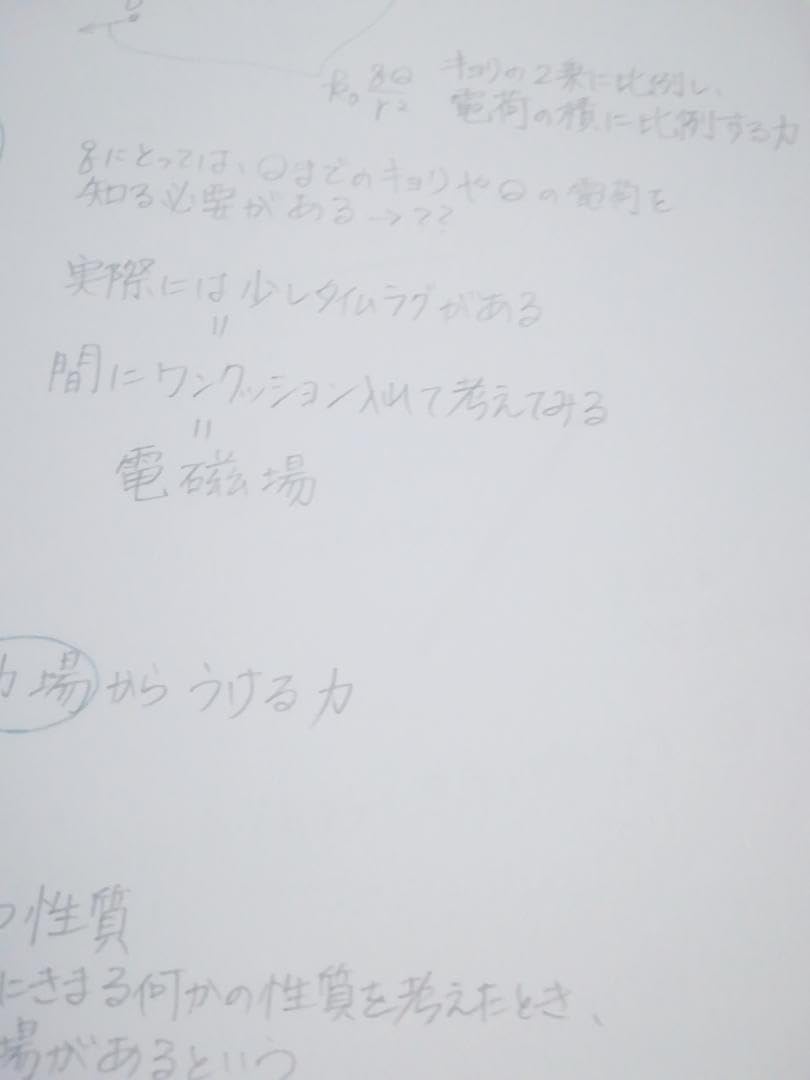 k₀ qQ/r² キョリの2乗に比例し、
電荷の積に比例する力
qにとっては、QまでのキョリやQの電荷を
知る必要がある→??
実際には少しタイムラグがある
=
間にワンクッション入れて考えてみる
=
電磁場
場からうける力
性質
にきまる何かの性質を考えたとき、
場があるという